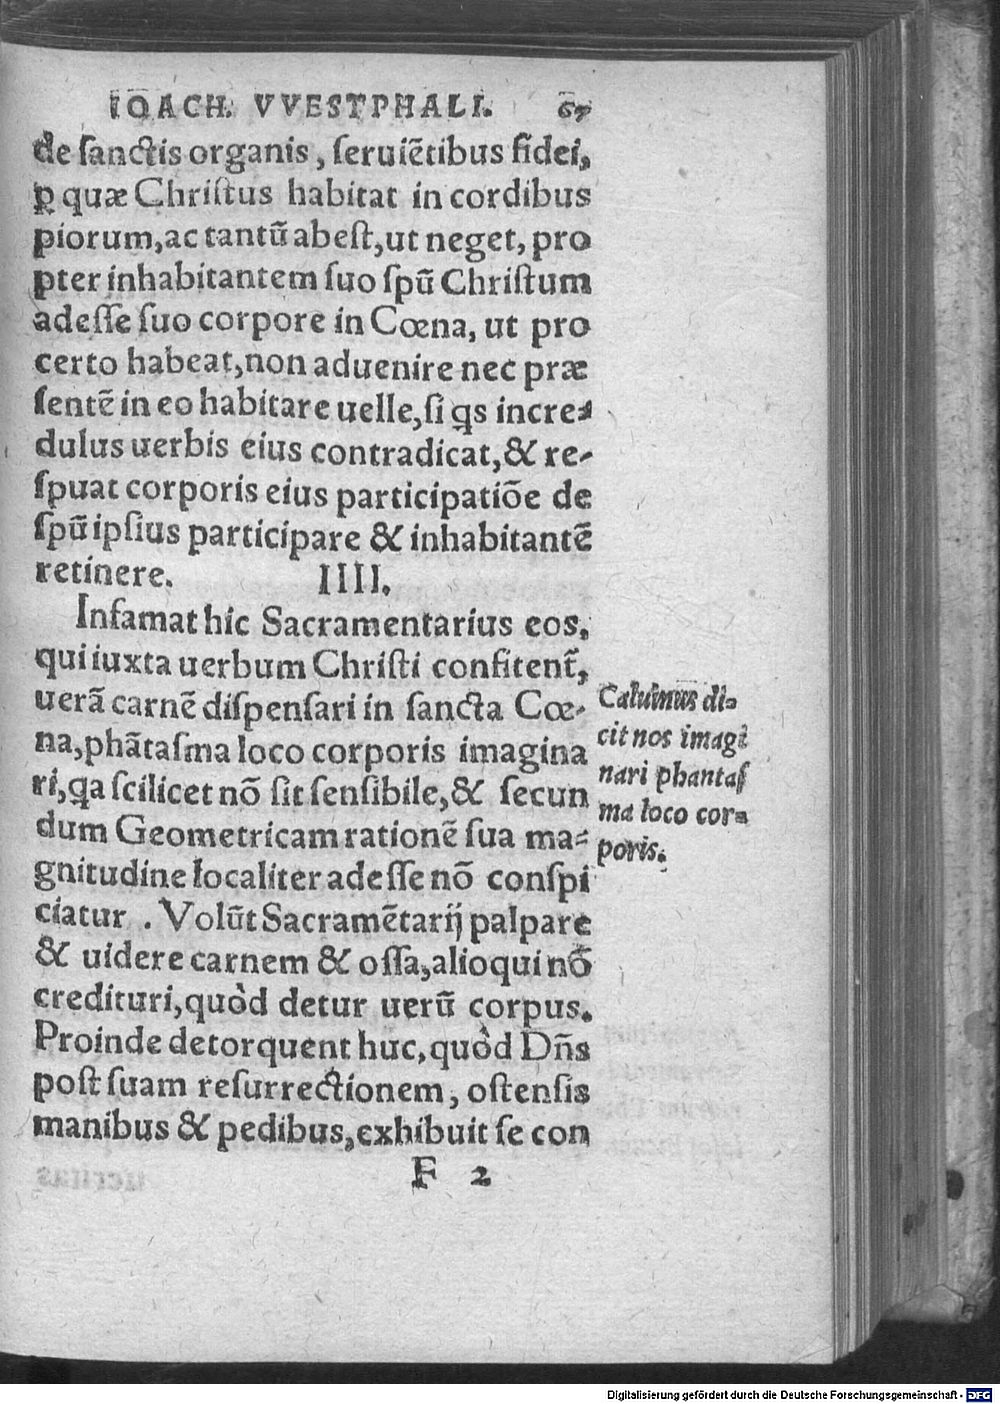 IOACH. VVESTPHALI. 67
de sanctis organis, seruiẽtibus fidei,
ꝑ quæ Christus habitat in cordibus
piorum, ac tantũ abest, ut neget, pro
pter inhabitantem suo spũ Christum
adesse suo corpore in Cœna, ut pro
certo habeat, non aduenire nec præ
sentẽ in eo habitare uelle, si qs incre-
dulus uerbis eius contradicat, & re-
spuat corporis eius participatiõe de
spũ ipsius participare & inhabitantẽ
retinere. IIII.
Infamat hic Sacramentarius eos,
qui iuxta uerbum Christi confitent᷒,
uerã carnẽ dispensari in sancta Cœ-
na, phãtasma loco corporis imagina
ri, qa scilicet nõ sit sensibile, & secun
dum Geometricam rationẽ sua ma-
gnitudine localiter adesse nõ conspi
ciatur. Volũt Sacramẽtarij palpare
& uidere carnem & ossa, alioqui nõ
credituri, quòd detur uerũ corpus.
Proinde detorquent huc, quòd Dñs
post suam resurrectionem, ostensis
manibus & pedibus, exhibuit se con
F 2
Caluinus di-
cit nos imagi
nari phantas
ma loco cor-
poris.
Digitalisierung gefördert durch die Deutsche Forschungsgemeinschaft - DFG